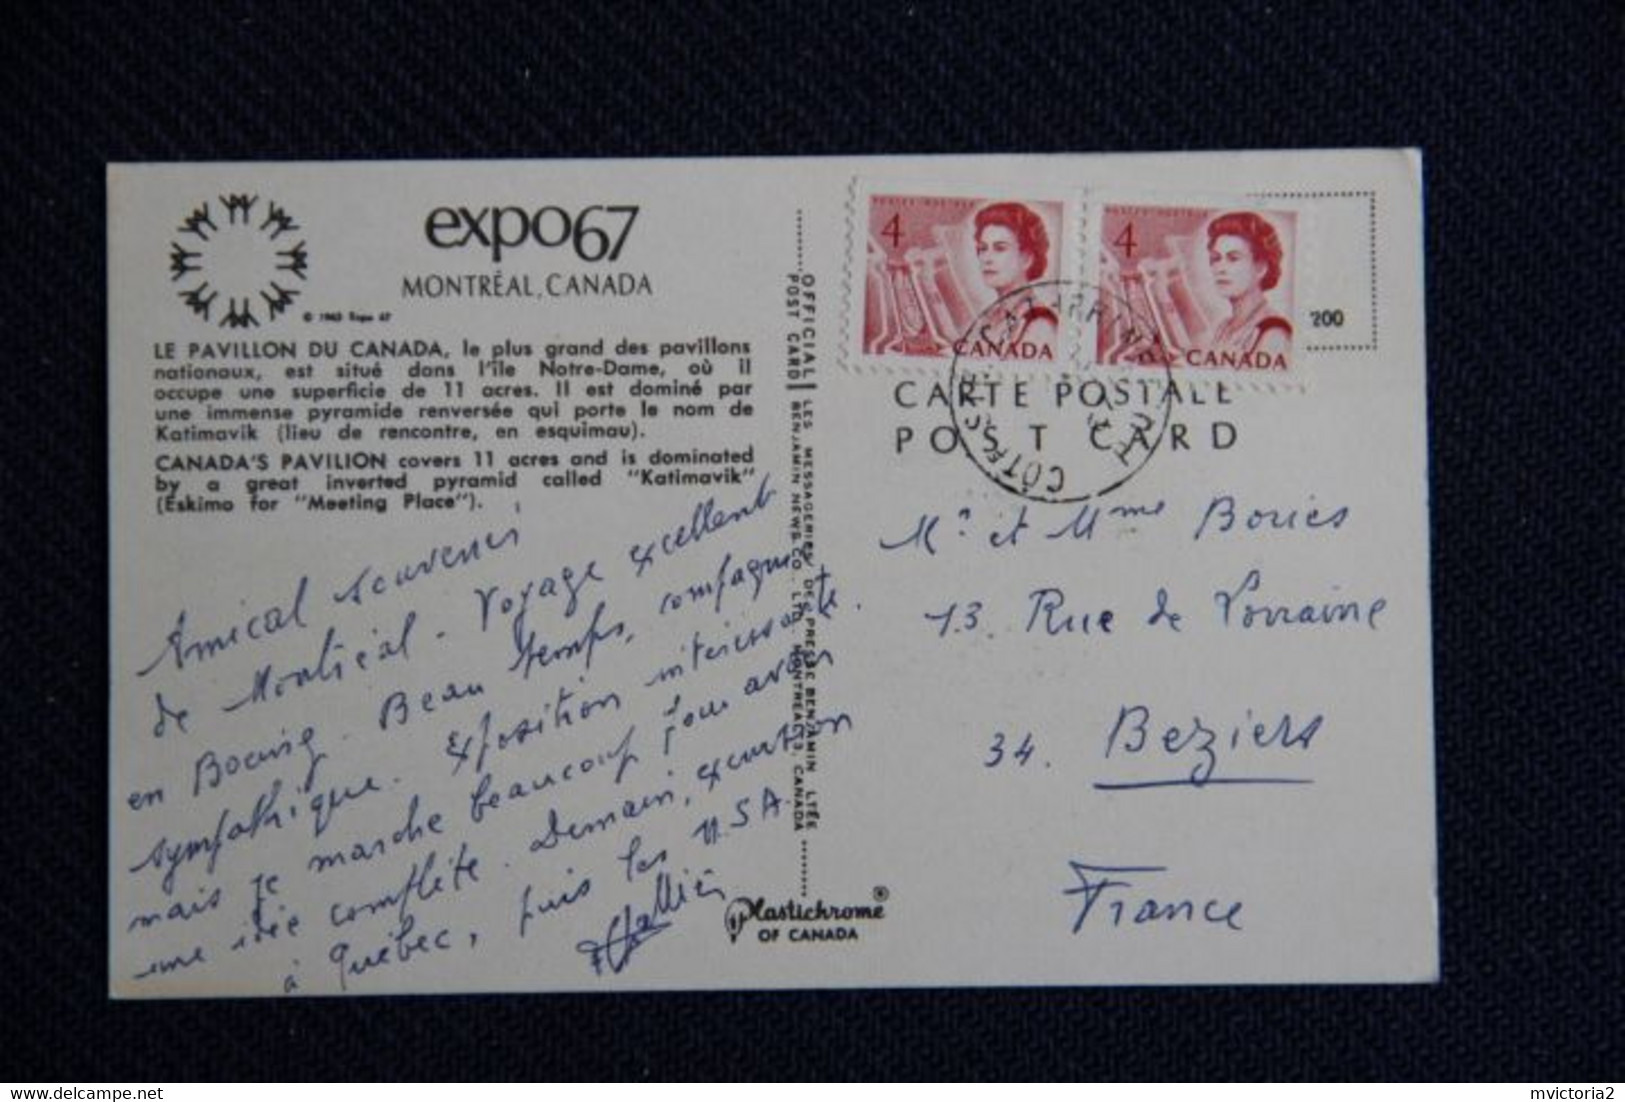 expo67
MONTRÉAL, CANADA
© 1963 Expo 67
LE PAVILLON DU CANADA, le plus grand des pavillons
nationaux, est situé dans l'île Notre-Dame, où il
occupe une superficie de 11 acres. Il est dominé par
une immense pyramide renversée qui porte le nom de
Katimavik (lieu de rencontre, en esquimau).
CANADA'S PAVILION covers 11 acres and is dominated
by a great inverted pyramid called "Katimavik"
(Eskimo for "Meeting Place").
Amical souvenir
de Montréal. Voyage excellent
en Boeing. Beau temps, compagnie
sympathique. Exposition intéressante.
mais je marche beaucoup pour avoir
une idée complète. Demain, excursion
à Québec, puis les USA.
OFFICIAL
POST CARD
LES MESSAGERIES DE PRESSE BENJAMIN LTÉE
BENJAMIN NEWS CO., LTD. MONTREAL 13, CANADA
Plastichrome®
OF CANADA
4
CANADA
4
CANADA
200
CARTE POSTALE
POST CARD
Mr et Mme Bories
13 Rue de Lorraine
34. Beziers
France
mvictoria2